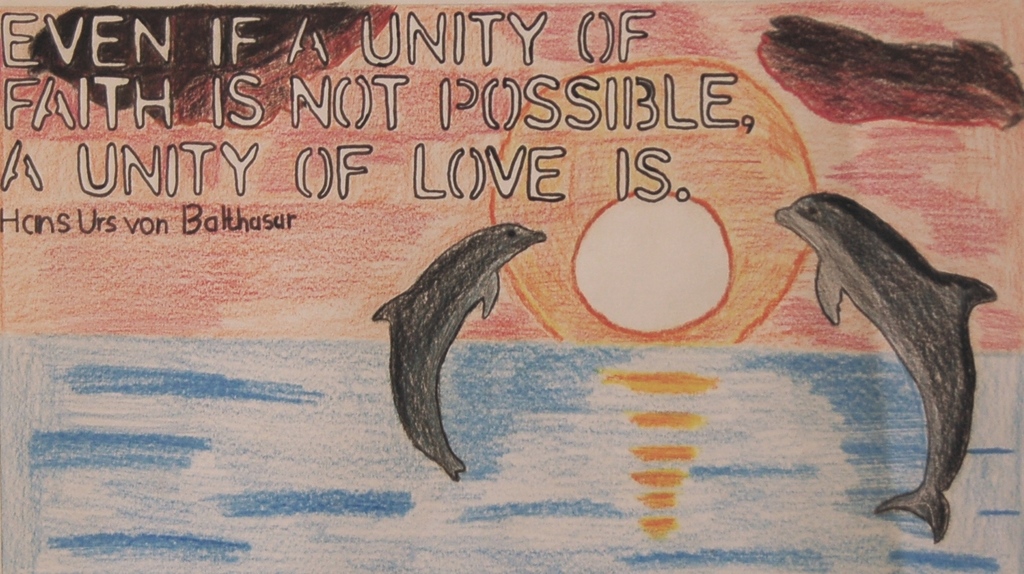 EVEN IF A UNITY OF
FAITH IS NOT POSSIBLE,
A UNITY OF LOVE IS.
Hans Urs von Balthasar